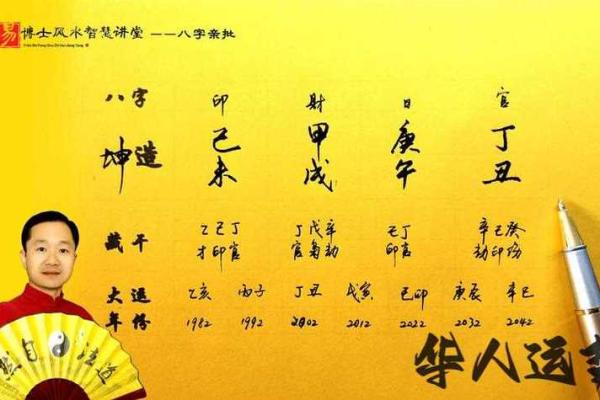 易 博士风水智慧讲堂 ——八字亲批
八字 印 财 日 官
坤造 己未 甲戌 庚午 丁丑
藏干 乙己丁 丁戊辛 己丁 辛己癸
才印官 官枭劫 印官 劫印伤
大运 乙亥 丙子 丁丑 戊寅 己卯 庚辰 辛巳
年份 1982 1992 2002 2012 2022 2032 2042
自 道
华人运